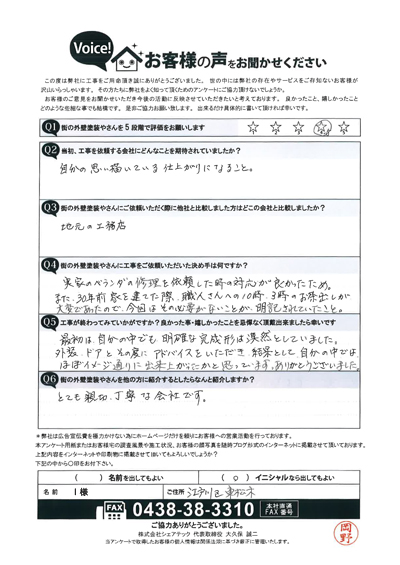 Voice!
お客様の声をお聞かせください
この度は弊社に工事をご用命頂き誠にありがとうございました。世の中には弊社の存在やサービスをご存知ないお客様が
沢山いらっしゃいます。その方たちに弊社をよく知って頂くためのアンケートにご協力頂けないでしょうか。
お客様のご意見をお聞かせいただき今後の活動に反映させていただきたいと考えております。良かったこと、嬉しかったこと
どのような些細な事でも結構です。是非ご協力お願い致します。出来るだけ具体的に書いて頂ければ幸いです。
Q1 街の外壁塗装やさんを5段階で評価をお願いします
Q2 当初、工事を依頼する会社にどんなことを期待されていましたか?
自分の思い描いている仕上がりになること。
Q3 街の外壁塗装やさんにご依頼いただく際に他社と比較しました方はどこの会社と比較しましたか?
地元の工務店
Q4 街の外壁塗装やさんに工事をご依頼いただいた決め手は何ですか?
実家のベランダの修理を依頼した時の対応が良かったため。
また、30年前家を建てた際、職人さんへの10時、3時のお茶出しが
大変であったので、今回はその必要がないことが明記されていたこと。
Q5 工事が終わってみていかがですか?良かった事・嬉しかったことを忌憚なく頂戴出来ましたら幸いです
最初は、自分の中でも明確な完成形は漠然としていました。
外壁、ドアとその度にアドバイスをいただき、結果として自分の中では、
ほぼイメージ通りに出来上がったかと思っています。ありがとうございました。
Q6 街の外壁塗装やさんを他の方に紹介するとしたらなんと紹介しますか?
とても親切、丁寧な会社です。
*弊社は広告宣伝費を極力かけない為にホームページだけを頼りにお客様への営業活動を行っております。
本アンケート用紙またはお客様宅の調査風景や施工状況、お客様の顔写真を随時ブログ形式のインターネットに掲載させて頂いております。
上記内容をインターネットや印刷物に掲載させて頂いてもよろしいでしょうか?
下記の中から○印をお付け下さい。
( )名前を出してもよい ( ○ )イニシャルなら出してもよい
名前 I様 ご住所 江戸川区東松本
FAX 0438-38-3310 本社直通 FAX番号
ご協力ありがとうございました。
株式会社シェアテック 代表取締役 大久保 誠二
当アンケートで取得したお客様の個人情報は関係法法に基づき厳正に管理いたします。
岡野